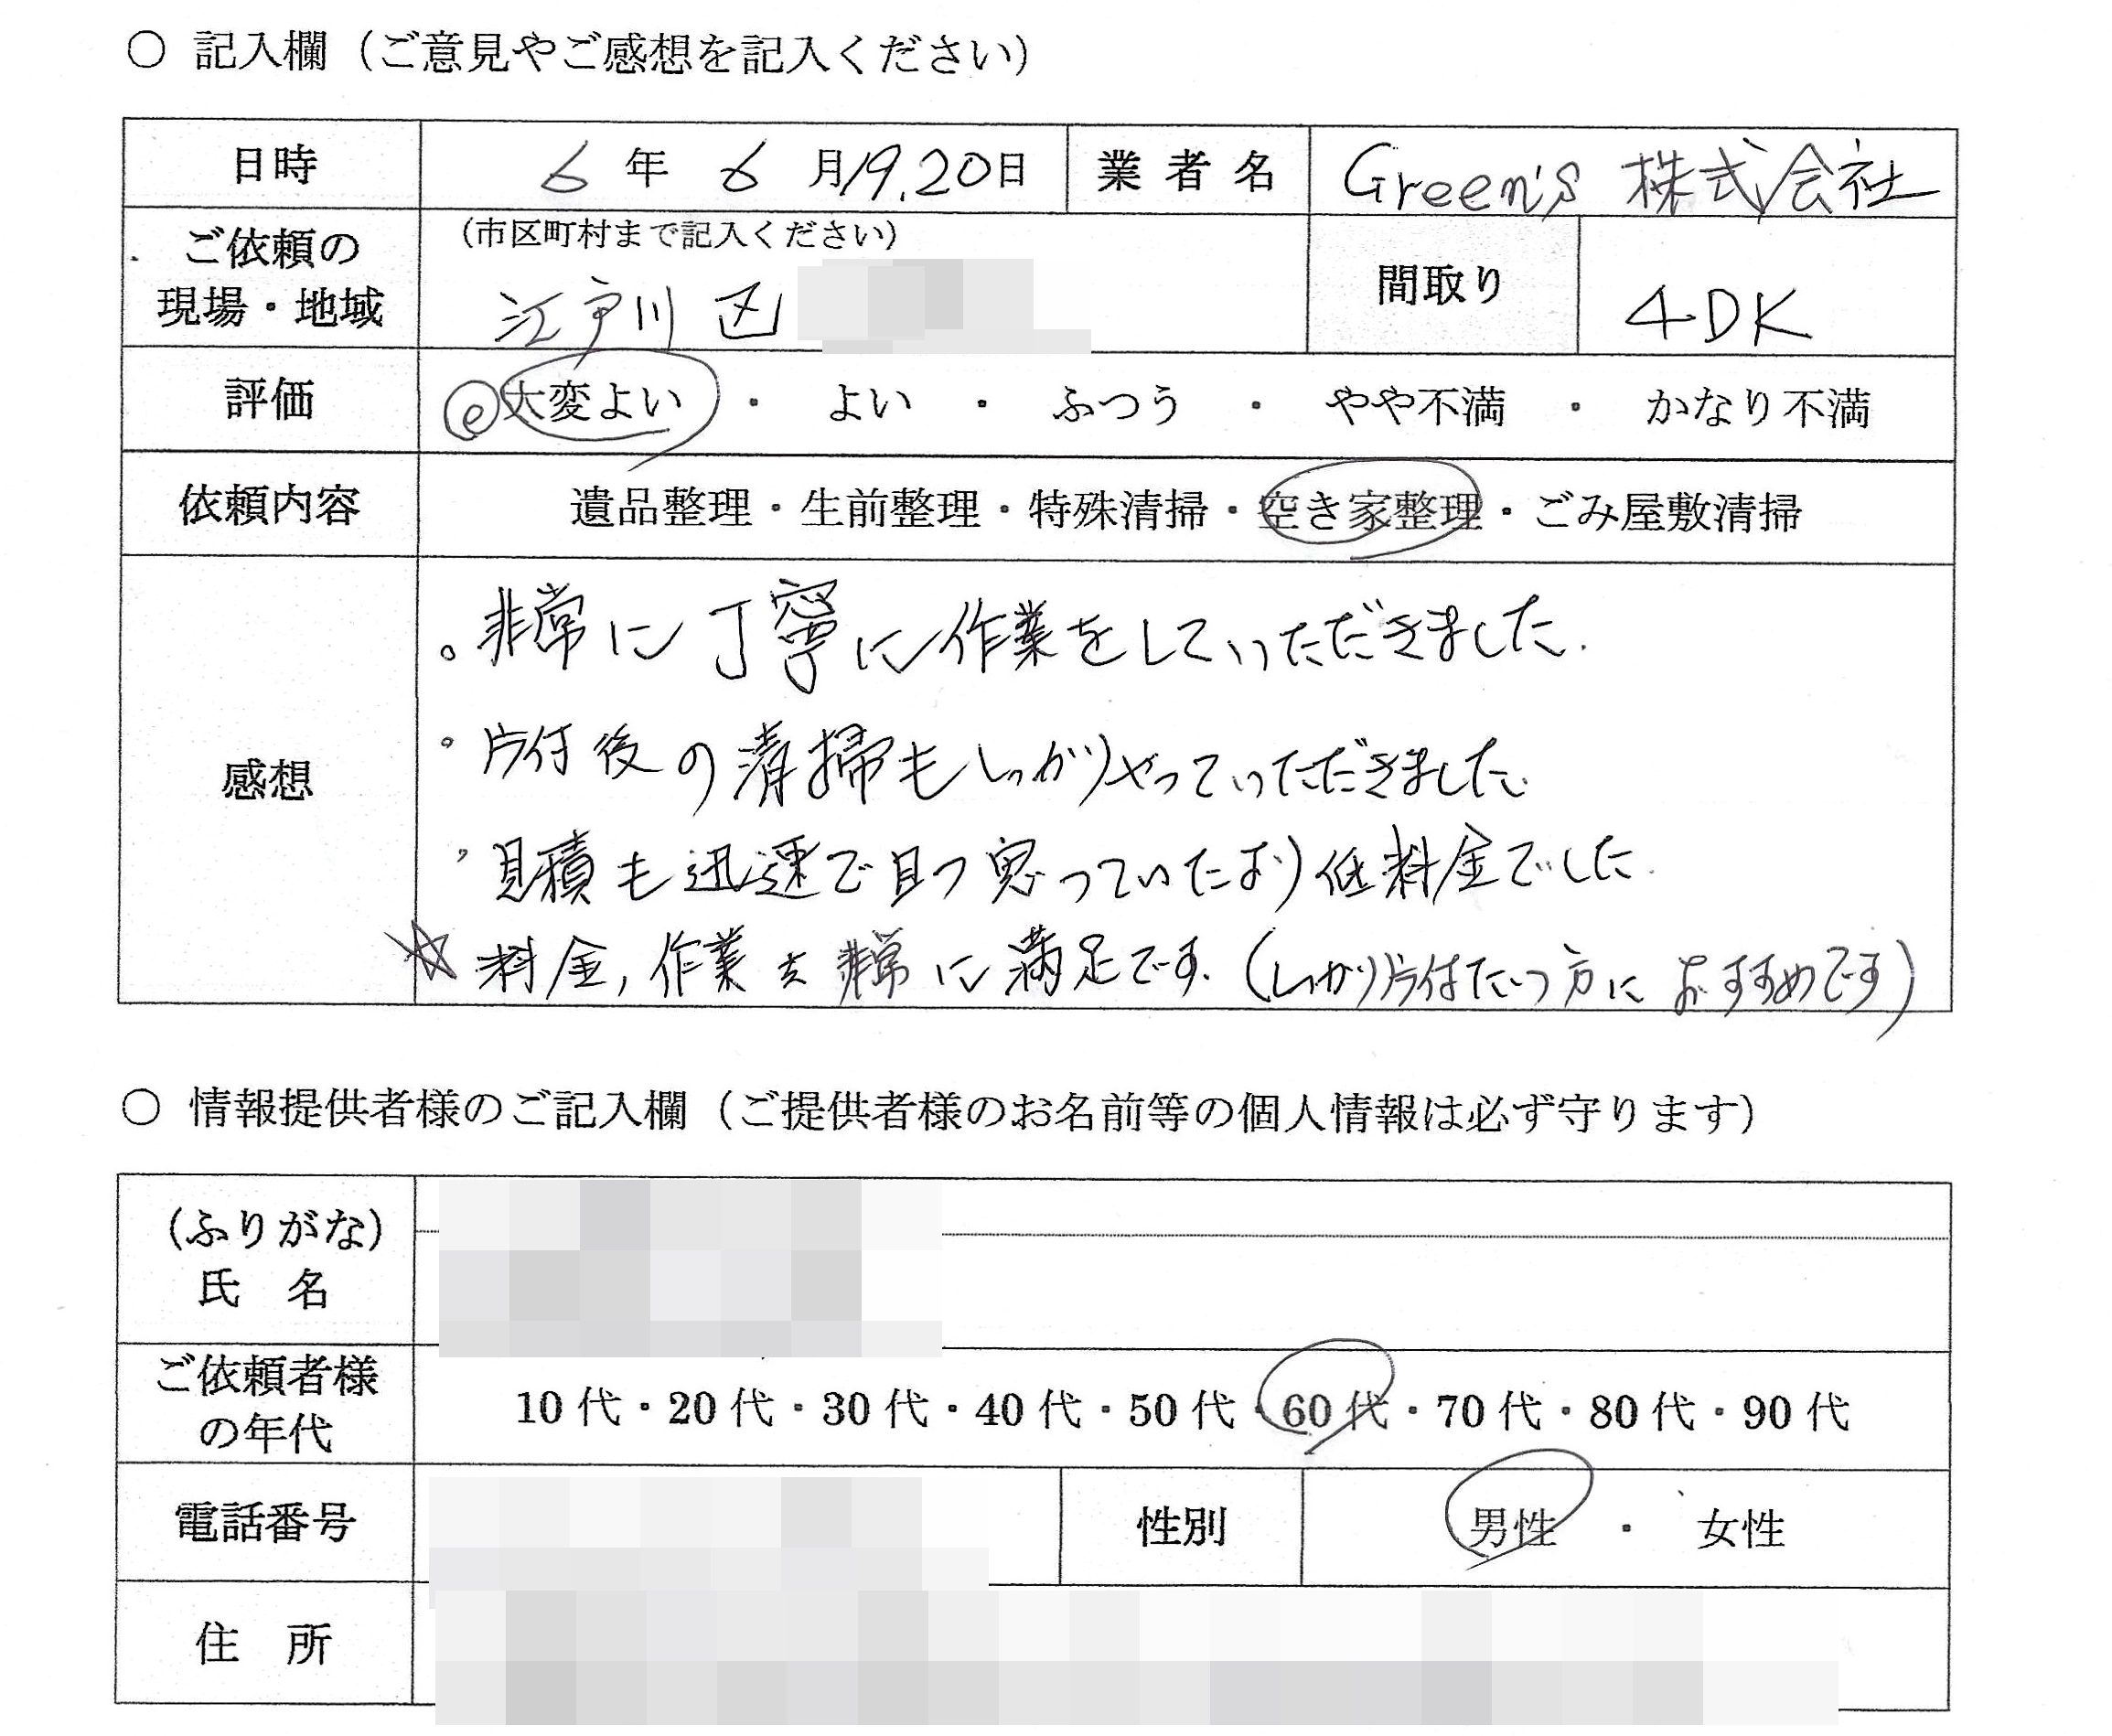 ○ 記入欄（ご意見やご感想を記入ください）
日時 6年 6月19.20日 業者名 Green's 株式会社
ご依頼の現場・地域 （市区町村まで記入ください） 江戸川区 間取り 4DK
評価 ⓔ大変よい ・ よい ・ ふつう ・ やや不満 ・ かなり不満
依頼内容 遺品整理・生前整理・特殊清掃・空き家整理・ごみ屋敷清掃
感想
。非常に丁寧に作業をしていただきました.
・片付後の清掃もしっかりやっていただきました.
・見積も迅速で且つ思っていたより低料金でした.
☆料金,作業共非常に満足です.(しっかり片付たい方におすすめです)
○ 情報提供者様のご記入欄（ご提供者様のお名前等の個人情報は必ず守ります）
（ふりがな）
氏 名
ご依頼者様の年代 10代・20代・30代・40代・50代・60代・70代・80代・90代
電話番号 性別 男性 ・ 女性
住 所